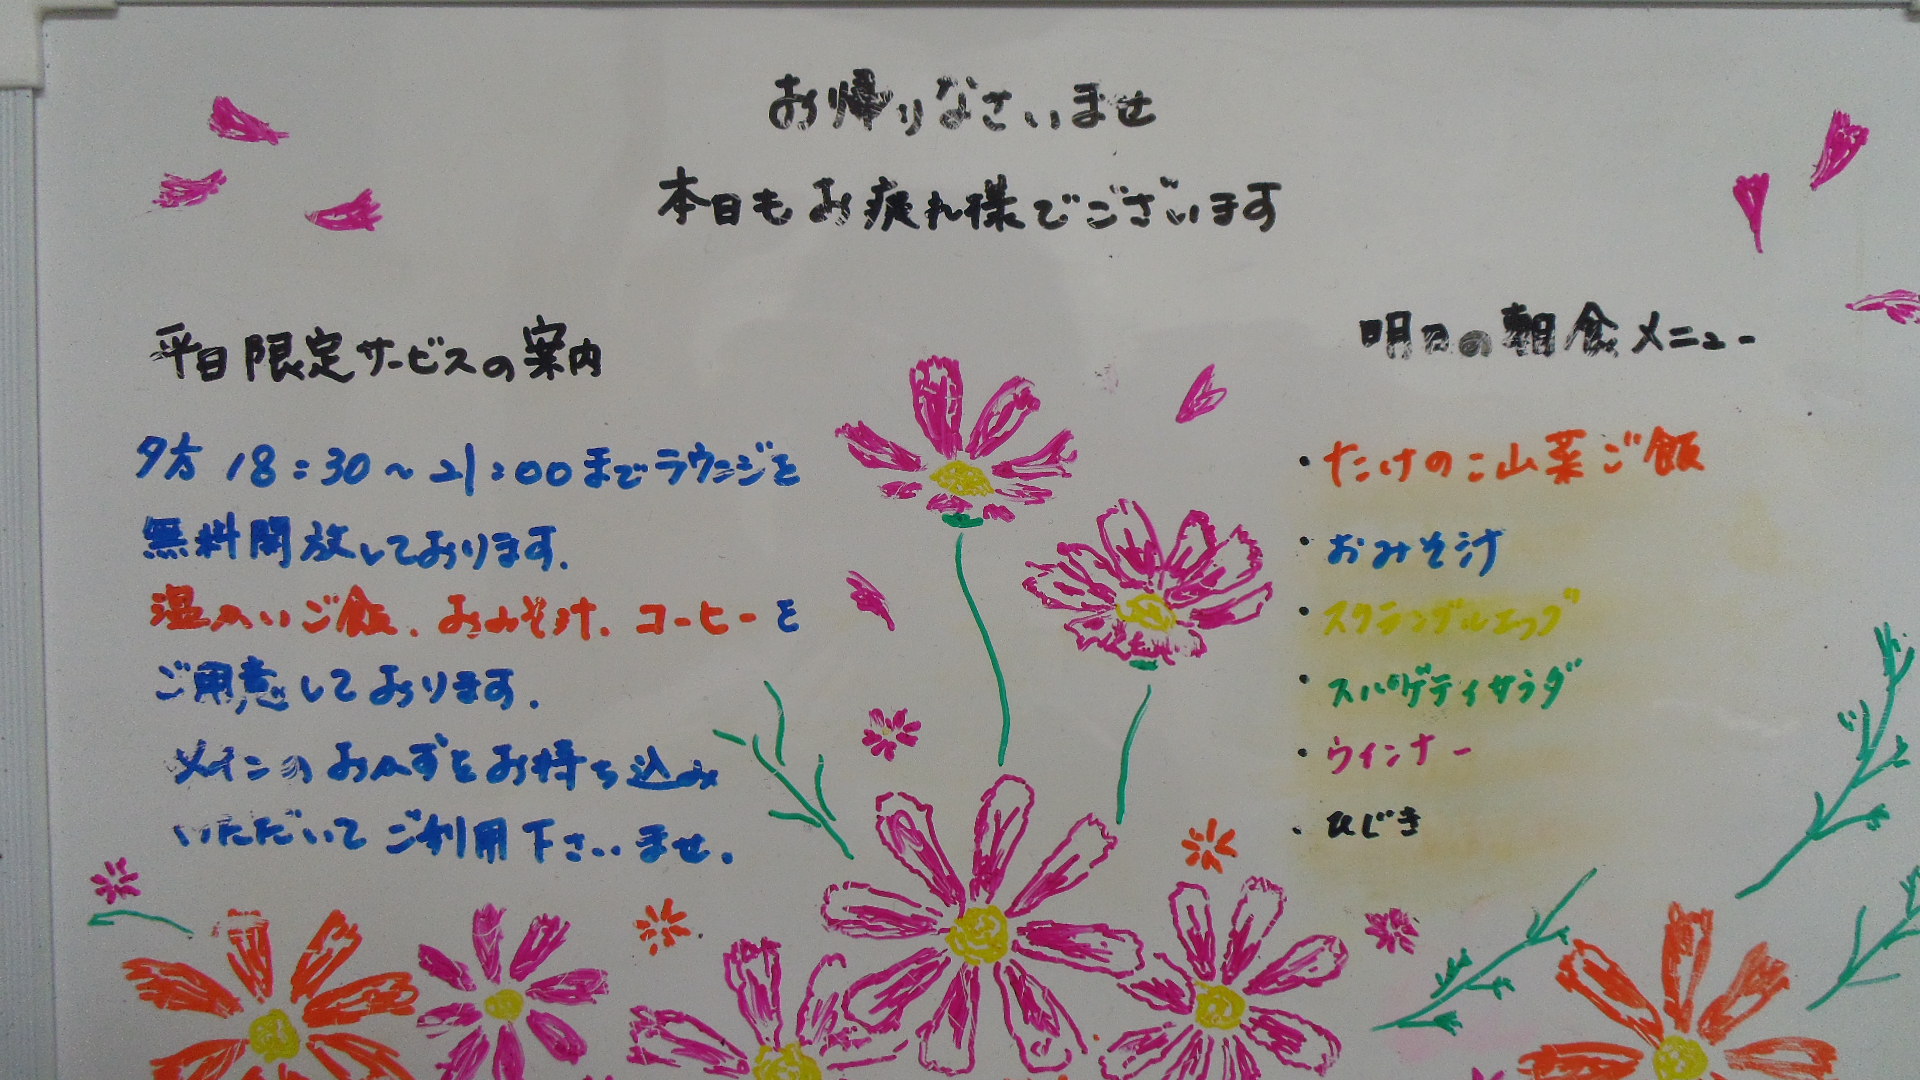 お帰りなさいませ
本日もお疲れ様でございます
平日限定サービスの案内
夕方 18:30～21:00までラウンジを
無料開放しております.
温かいご飯、おみそ汁、コーヒーを
ご用意しております.
メインのおかずをお持ち込み
いただいてご利用下さいませ.
明日の朝食メニュー
・たけのこ山菜ご飯
・おみそ汁
・スクランブルエッグ
・スパゲティサラダ
・ウインナー
・ひじき